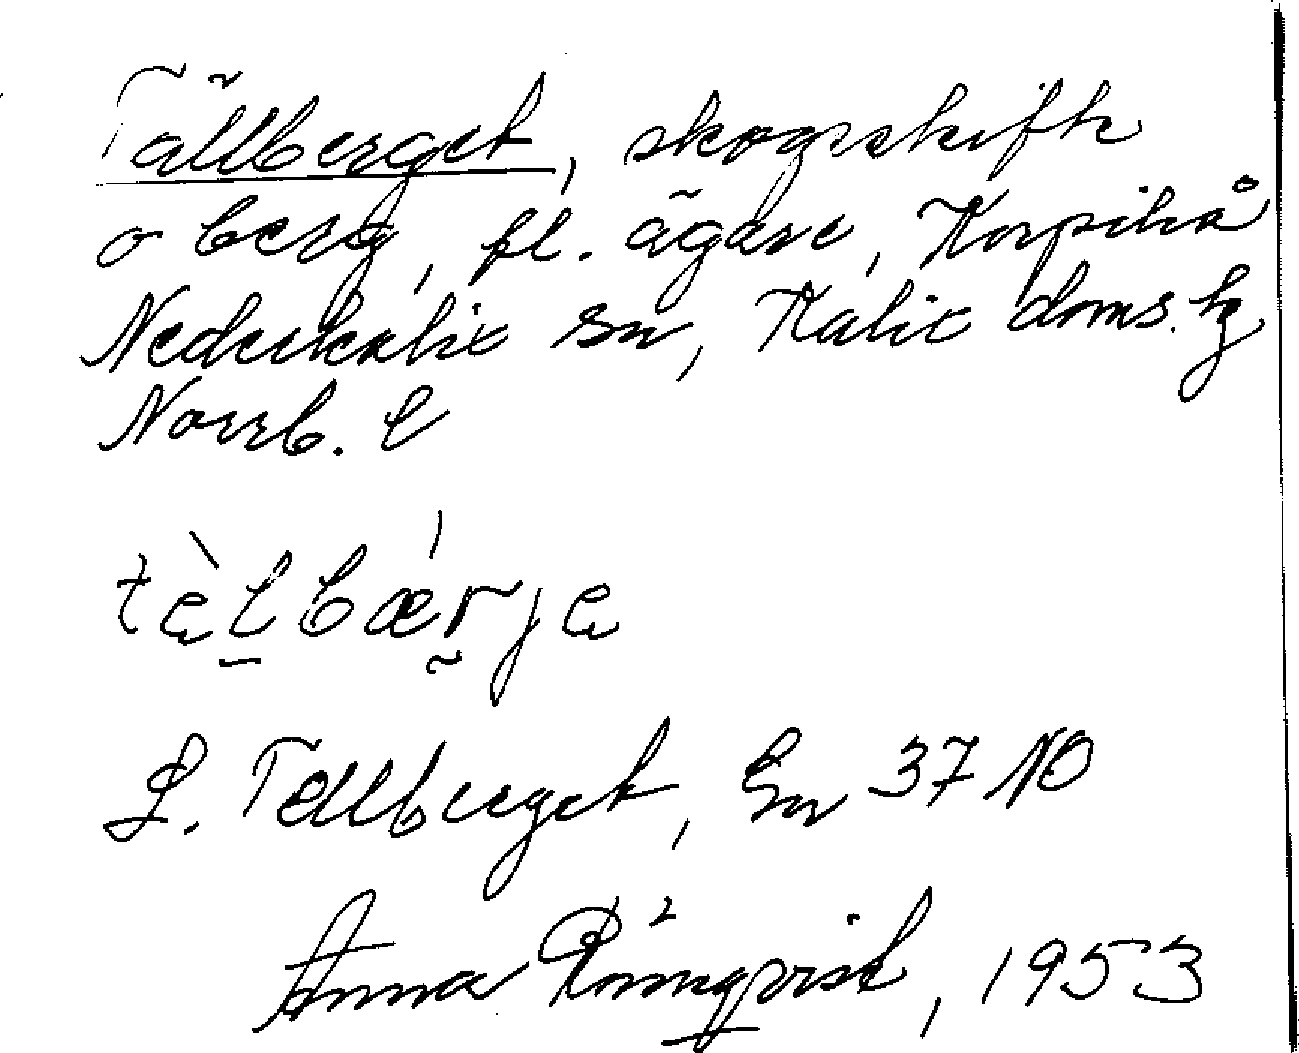 Tällberget, skogsskifte
o berg, fl. ägare, Korpikå
Nederkalix sn, Kalix doms. hg
Norrb. l
tèlbǽrje
L. Tällberget, Gn 37 NO
Anna Rönnqvist, 1953